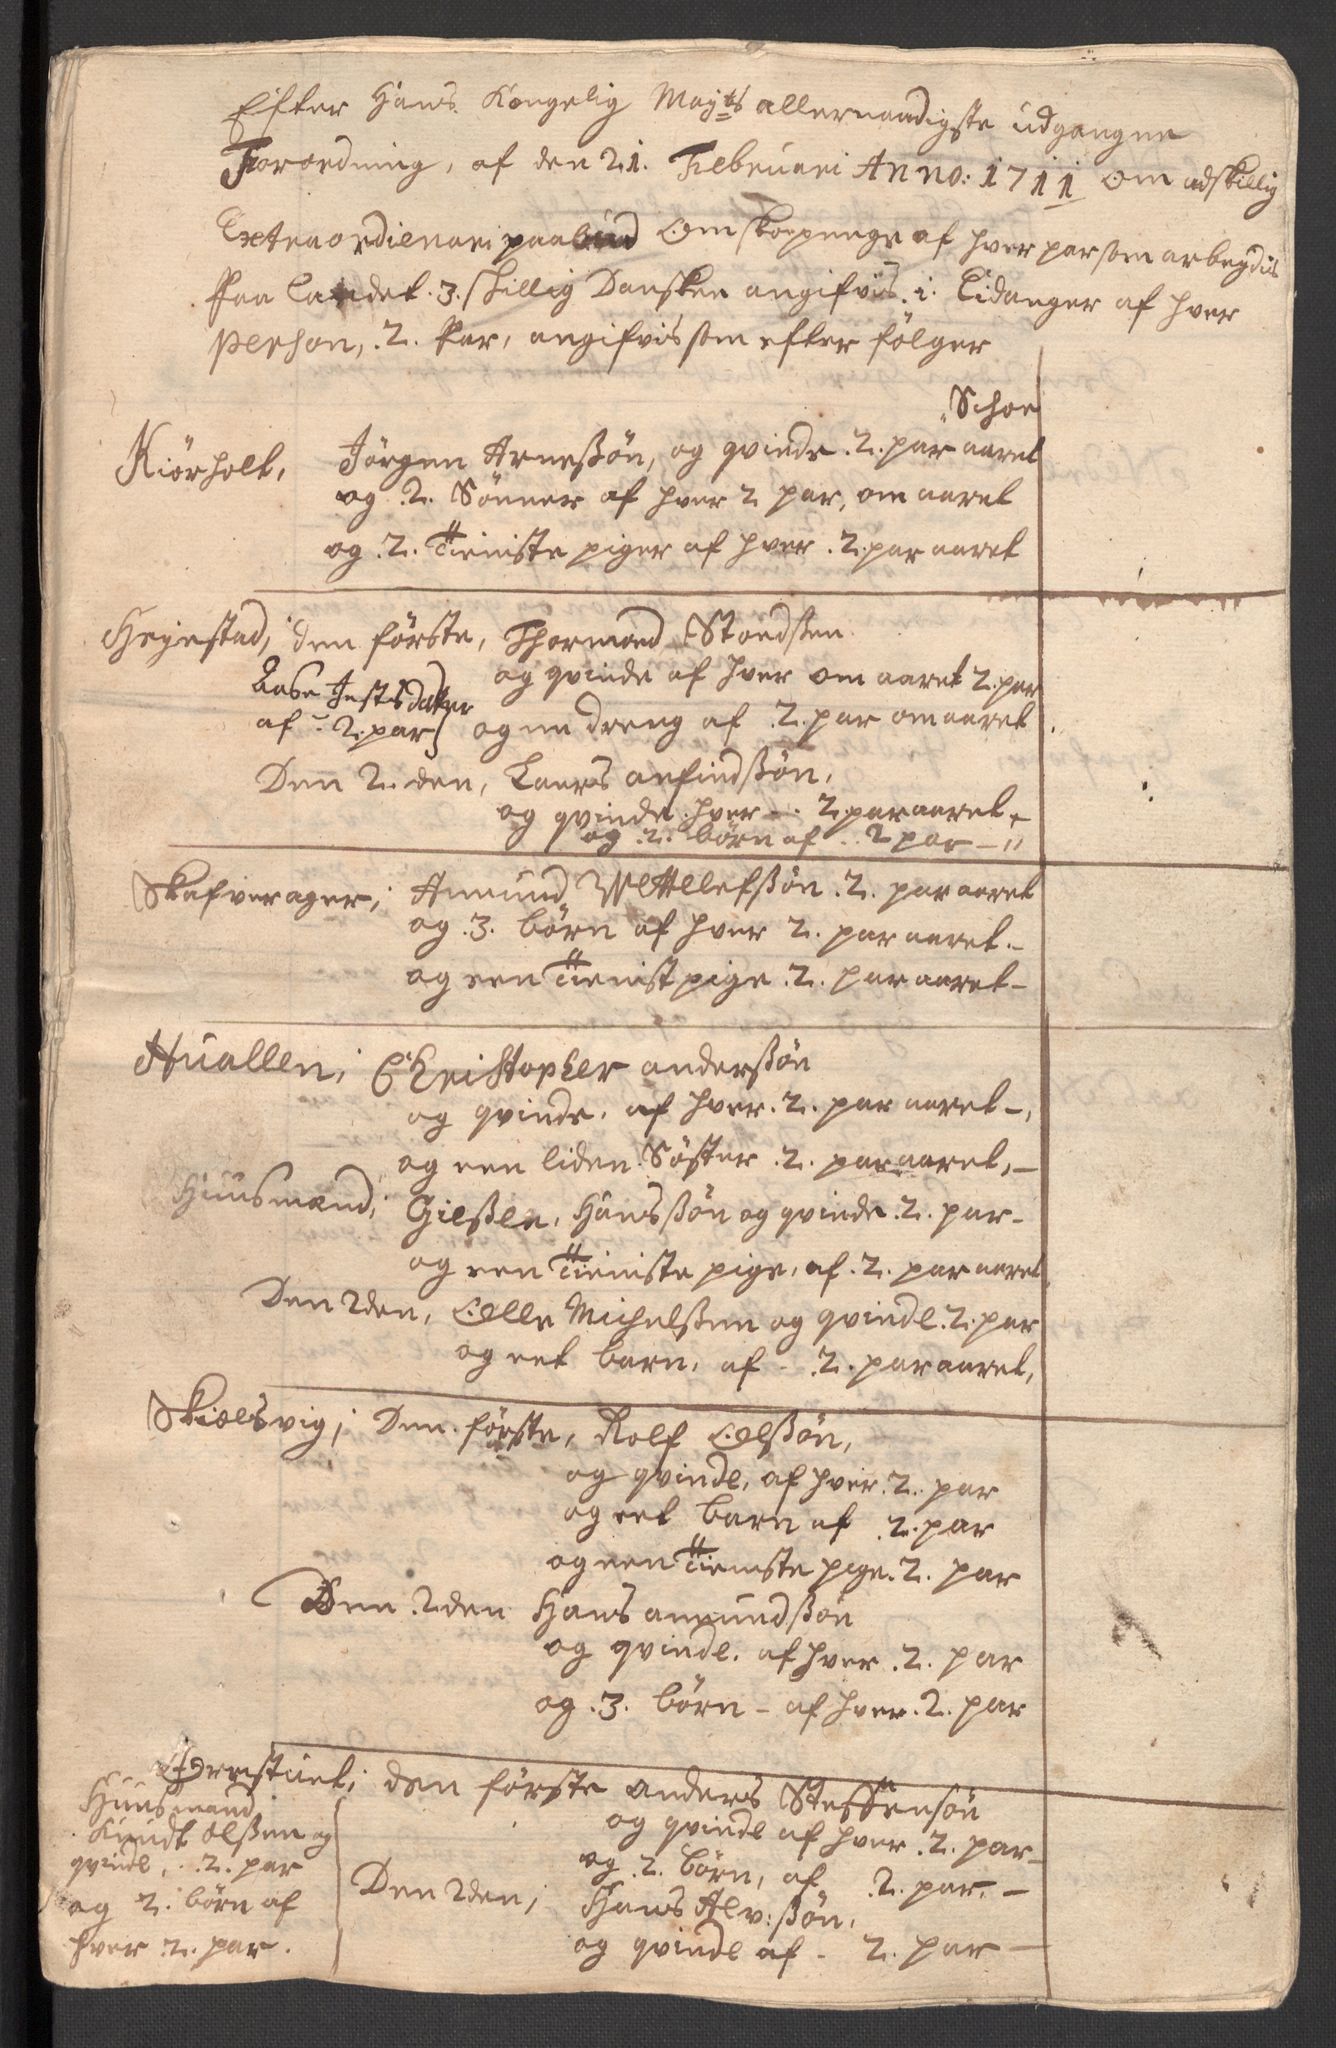 Efter Hans Kongelig Mayts allernaadigste udgangne
Forordning, af den 21. Februari Anno: 1711 om adskillig
Extraordienari paabud Om skoepenge af hver par som arbeydis
Paa Landet .3. skillig Danske angifvis. i. Eidanger af hver
Person, .2. Par, angifvis som efter fölger
Schoe
Kiörholt, Jörgen Arneßön, og qvinde .2. par aaret
og .2. Sönner af hver 2 par, om aaret
og .2. Tieniste piger af hver .2. par aaret
Heyestad, den förste, Thormoed Stoedsen
og qvinde af hver om aaret 2. par
Aase Jestsdatter
af - 2. par} og en dreng af .2. par om aaret
Den 2. den, Laers anfindßön,
og qvinde hver - . 2. par aaret
og .2. börn af .. 2 par - "
Skafverager, Amund Wettellefßön .2. par aaret
og .3. börn af hver 2. par aaret -
og een Tienist pige .2. par aaret -
Huallen, Christopher anderßön
og qvinde. af hver .2. par aaret -,
og een liden Söster .2. par aaret, -
Huusmænd, Gießle, Hansßön og qvinde .2. par -
og een Tieniste pige, af .2. par aaret
Den 2den, Olle Michelßen og qvinde .2. par
og eet barn, af - .2. par aaret,
Skielsvig, Den förste, Rolf Olßön,
og qvinde, af hver .2. par
og eet barn af .2. par
og een Tieniste pige .2. par
Den .2den Hans amundßön
og qvinde. af hver .2. par
og .3. börn - af hver .2. par
Ørrestuet, den förste anders Steffensön
og qvinde af hver .2. par -
og .2. börn, af .2. par. -
Den 2den, Hans Alv:ßön,
og qvinde af - 2. par -
Huusmand
Knudt olßen og
qvinde, .2. par
og 2. börn af
hver .2. par.